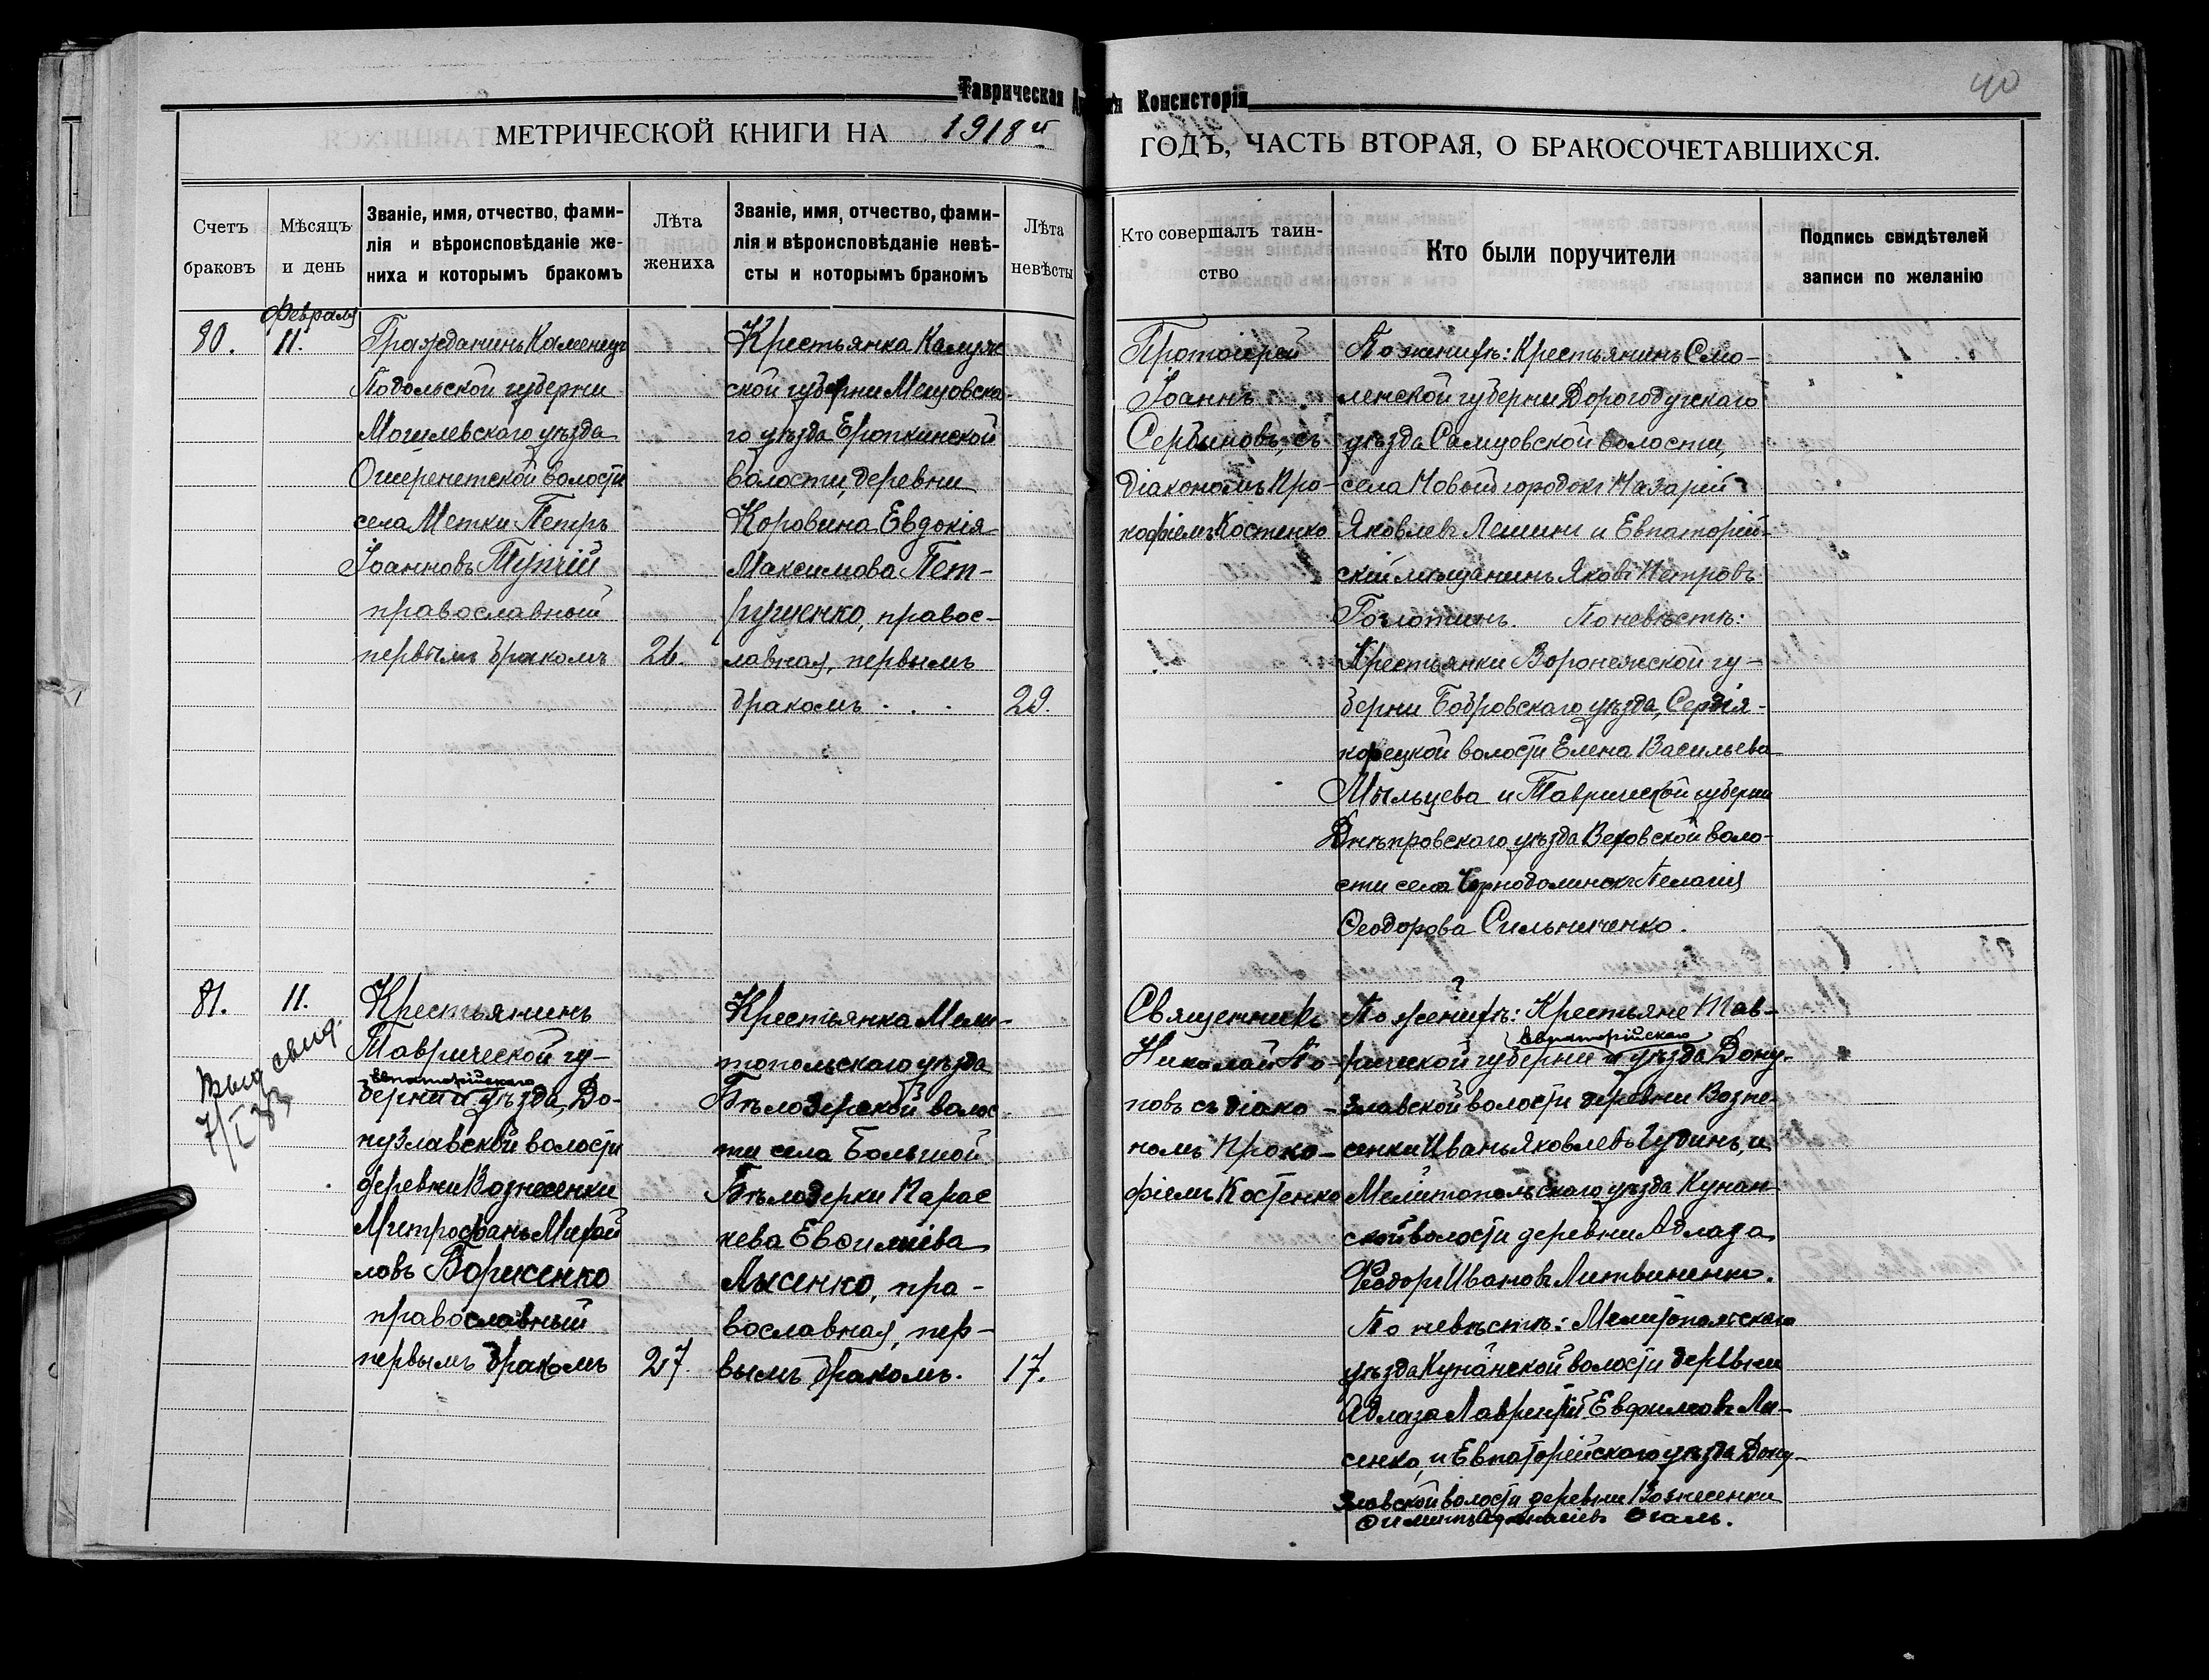 Таврическая
Консисторія
40
МЕТРИЧЕСКОЙ КНИГИ НА 1918й
ГОДЪ, ЧАСТЬ ВТОРАЯ, О БРАКОСОЧЕТАВШИХСЯ.
Счетъ
браковъ
Мѣсяцъ
и день
Званіе, имя, отчество, фами-
лія и вѣроисповѣданіе же-
ниха и которымъ бракомъ
Лѣта
жениха
Званіе, имя, отчество, фами-
лія и вѣроисповѣданіе невѣ-
сты и которымъ бракомъ
Лѣта
невѣсты
Кто совершалъ таин-
ство
Кто были поручители
Подпись свидѣтелей
записи по желанію
80.
Февраля
11.
Гражданинъ Каменецъ
Подольской губерни
Могилевскаго уѣзда
волости
села Метки Петръ
Іоанновъ
православный
первымъ бракомъ
26.
Крестьянка Калуж
ской губерни Мещовска-
го уѣзда Еропкинской
волости, деревни
Коровина Евдокія
Максимова Пет-
рушенко, правос-
лавная, первымъ
бракомъ . . .
29.
Протоіерей
Іоаннъ
Сербиновъ, съ
діакономъ Про-
кофіемъ Костенко
По женихѣ: Крестьянинъ Смо-
ленской губерни Дорогобужскаго
уѣзда Самцовской волости,
села Новый городокъ Назарій
Яковлевъ Лешинъ и Евпаторій-
скій мѣщанинъ Яковъ Петровъ
По невѣстѣ:
Крестьянки Воронежской гу-
берни Бобровскаго уѣзда,
корецкой волости Елена Васильева
Мыльцева и Таврической губерни
Днѣпровскаго уѣзда воло-
сти села Пелагія
Ѳеодорова Сильниченко.
81.
11.
Выд свид.
7/I 83
Крестьянинъ
Таврической гу-
Евпаторійскаго
берни и уѣзда, До-
нузлавской волости
деревни Вознесенки
Митрофанъ Михай
ловъ Борисенко
православный
первымъ бракомъ
27.
Крестьянка Мели-
топольскаго уѣзда
Бѣлозерской волос-
ти села Большой
Бѣлозерки Парас
кева
Лысенко, пра-
вославная, пер-
вымъ бракомъ.
17.
Священникъ
Николай По-
повъ съ діако-
номъ Проко-
фіемъ Костенко
?
По женихѣ: Крестьяне Тав-
Евпаторійскаго
рической губерни и уѣзда Дону-
злавской волости деревни Возне-
сенки Иванъ Яковлевъ Чудинъ, и
Мелитопольскаго уѣзда Кунан-
ской волости деревни Аблаза
Ѳеодоръ Ивановъ Литвиненко.
По невѣстѣ: Мелитопольскаго
уѣзда Кунанской волости деревни
Аблаза Лаврентій Евфимовъ Лы-
сенко, и Евпаторійскаго уѣзда Дону-
злавской волости деревни Вознесенки